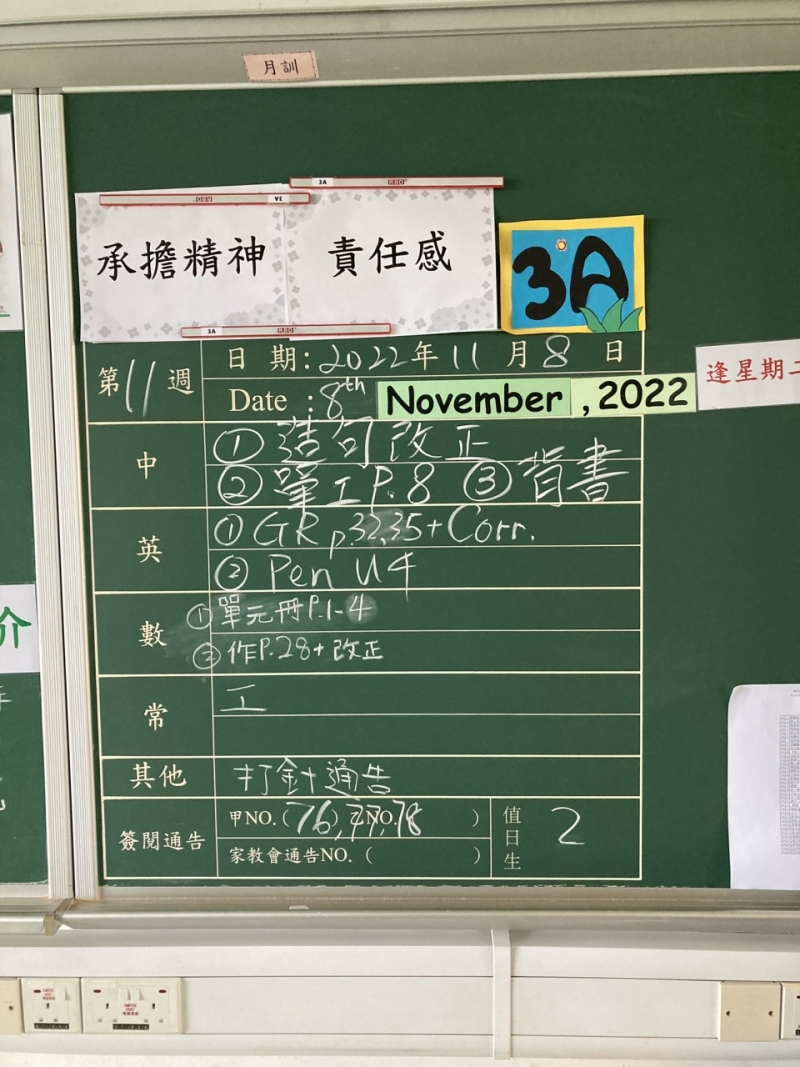 月訓
承擔精神
責任感
3A
第11週
日 期:2022年11月8日
Date :8th November ,2022
逢星期二
中
①造句改正
②單工P.8 ③背書
英
①GR p.32,35+Corr.
②Pen U4
數
①單元冊P.1-4
②作P.28+改正
常
工
其他
打針通告
簽閱通告
甲NO.(76),乙NO.77,78 )
家教會通告NO.( )
值日生
2
介